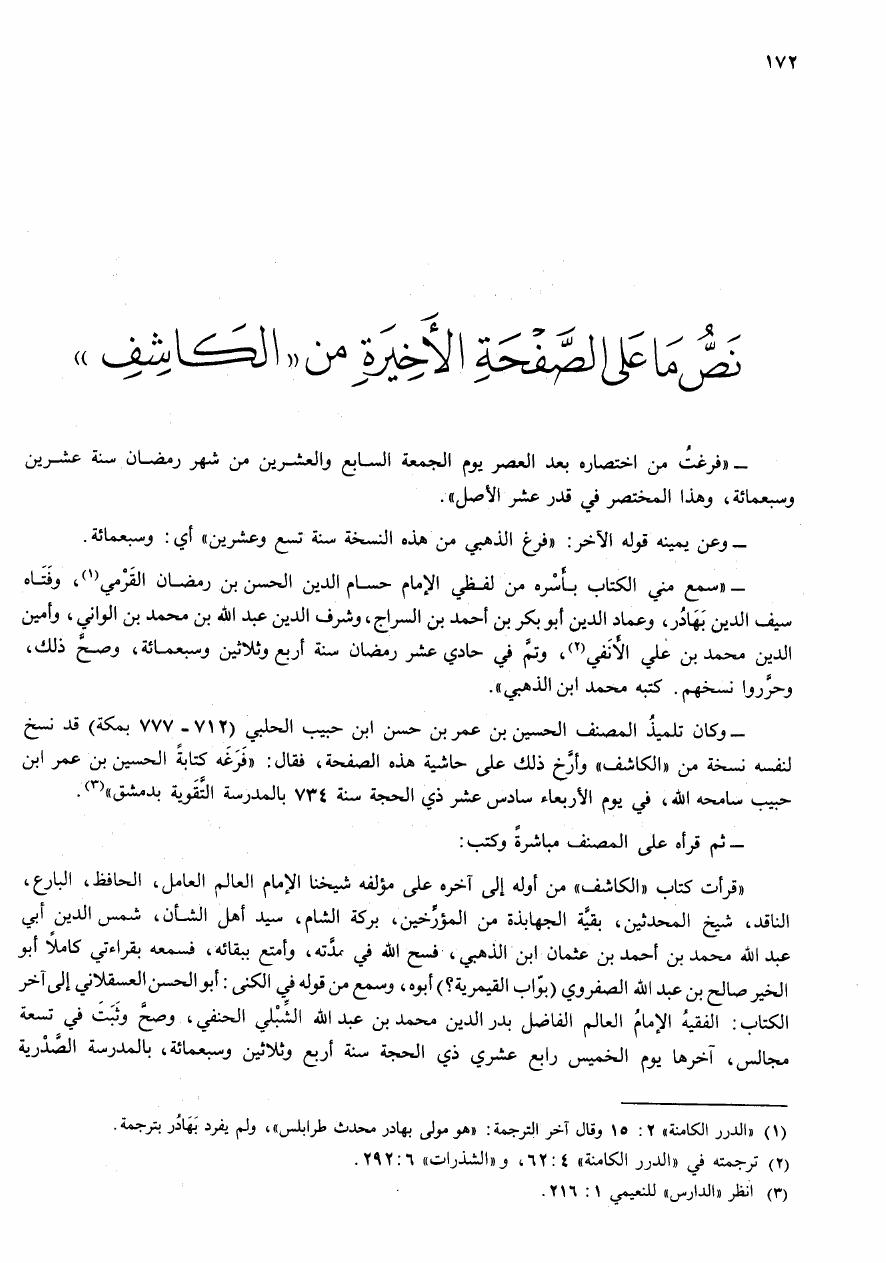 ١٧٢
نَصُّ مَا عَلى الصَّفْحَةِ الأَخِيَرةِ من «الكَاشِفِ»
ــ «فرغتُ من اختصاره بعد العصر يوم الجمعة السابع والعشرين من شهر رمضان سنة عشرين
وسبعمائة، وهذا المختصر في قدر عشر الأصل».
ــ وعن يمينه قوله الآخر: «فرغ الذهبي من هذه النسخة سنة تسع وعشرين» أي: وسبعمائة.
ــ «سمع مني الكتاب بأسْره من لفظي الإمام حسام الدين الحسن بن رمضان القَرْمي(١)، وفَتَاه
سيف الدين بَهَادُر، وعماد الدين أبو بكر بن أحمد بن السراج، وشرف الدين عبد الله بن محمد بن الواني، وأمين
الدين محمد بن علي الأَنَفي(٢)، وتمَّ في حادي عشر رمضان سنة أربع وثلاثين وسبعمائة، وصحَّ ذلك،
وحرَّروا نسخهم. كتبه محمد ابن الذهبي».
ــ وكان تلميذُ المصنف الحسين بن عمر بن حسن ابن حبيب الحلبي (٧١٢ - ٧٧٧ بمكة) قد نسخ
لنفسه نسخة من «الكاشف» وأرَّخ ذلك على حاشية هذه الصفحة، فقال: «فَرَغَه كتابةً الحسين بن عمر ابن
حبيب سامحه الله، في يوم الأربعاء سادس عشر ذي الحجة سنة ٧٣٤ بالمدرسة التَّقَوية بدمشق»(٣).
ــ ثم قرأه على المصنف مباشرةً وكتب:
«قرأت كتاب «الكاشف» من أوله إلى آخره على مؤلفه شيخنا الإمام العالم العامل، الحافظ، البارع،
الناقد، شيخ المحدثين، بقيَّة الجهابذة من المؤرِّخين، بركة الشام، سيد أهل الشأن، شمس الدين أبي
عبد الله محمد بن أحمد بن عثمان ابن الذهبي، فسح الله في مدَّته، وأمتع ببقائه، فسمعه بقراءتي كاملاً أبو
الخير صالح بن عبد الله الصفروي (بوّاب القيمرية؟) أبوه، وسمع من قوله في الكنى: أبو الحسن العسقلاني إلى آخر
الكتاب: الفقيهُ الإمامُ العالم الفاضل بدر الدين محمد بن عبد الله الشِّبْلي الحنفي، وصحَّ وثَبَتَ في تسعة
مجالس، آخرها يوم الخميس رابع عشري ذي الحجة سنة أربع وثلاثين وسبعمائة، بالمدرسة الصَّدْرية
(١) «الدرر الكامنة» ٢: ١٥ وقال آخر الترجمة: «هو مولى بهادر محدث طرابلس»، ولم يفرد بَهَادُر بترجمة.
(٢) ترجمته في «الدرر الكامنة» ٤: ٦٢، و«الشذرات» ٦: ٢٩٢.
(٣) انظر «الدارس» للنعيمي ١: ٢١٦.